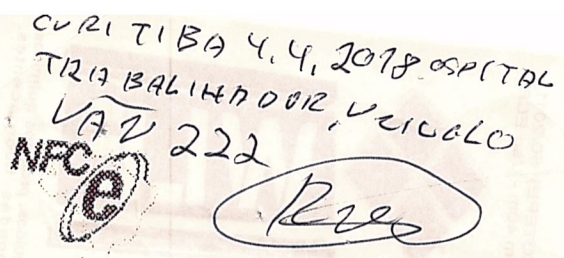 CURITIBA 4.4.2018 OSPITAL
TRABALHADOR, VEICULO
VAN 222
NFC e